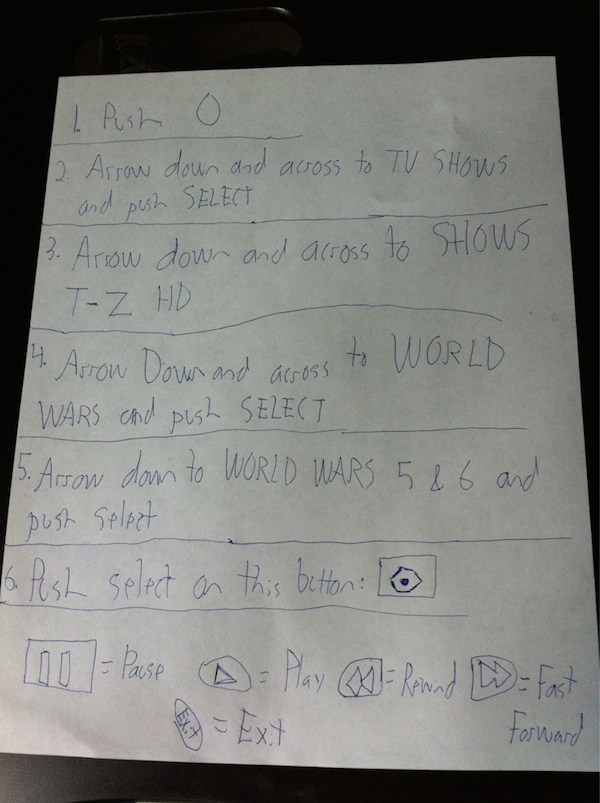 1. Push
2. Arrow down and across to TV SHOWS
and push SELECT
3. Arrow down and across to SHOWS
T-Z HD
4. Arrow Down and across to WORLD
WARS and push SELECT
5. Arrow down to WORLD WARS 5 & 6 and
push select
6. Push select on this button:
= Pause = Play = Rewind = Fast
Forward
Exit = Exit